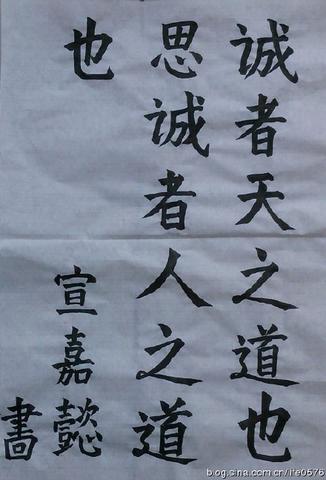 诚者天之道也
思诚者人之道
也
宣嘉懿
書
blog.sina.com.cn/ife0576